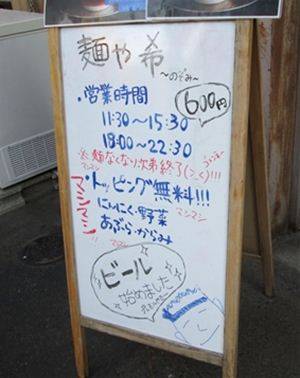 麺や 希
～のぞみ～
・営業時間
600円
11:30～15:30
18:00～22:30
※麺なくなり次第終了(>_<)!!!
マシマシ
トッピング無料!!!
にんにく・野菜
マシマシ
あぶら・からみ
マシマシ
ビール
始めました